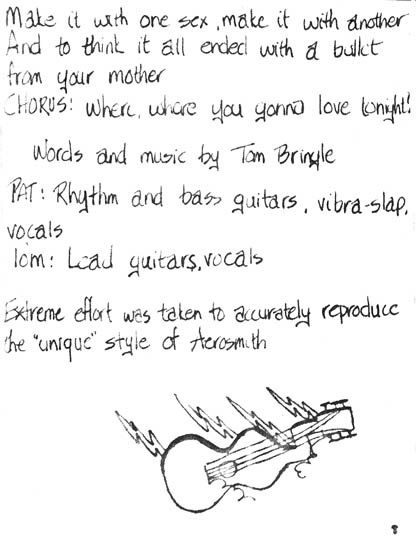 Make it with one sex, make it with another
And to think it all ended with a bullet
from your mother
CHORUS: Where, whore you gonna love tonight!
Words and music by Tom Bringle
PAT: Rhythm and bass guitars, vibra-slap,
vocals
Tom: Lead guitars, vocals
Extreme effort was taken to accurately reproduce
the "unique" style of Aerosmith
8